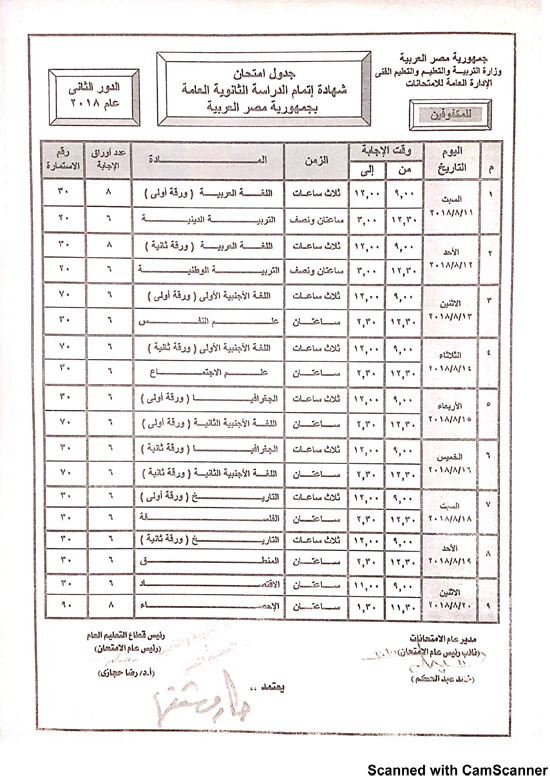 جمهورية مصر العربية
وزارة التربية والتعليم والتعليم الفنى
الإدارة العامة للامتحانات
للمكفوفين
جدول امتحان
شهادة إتمام الدراسة الثانوية العامة
بجمهورية مصر العربية
الدور الثانى
عام ٢٠١٨
م اليوم التاريخ وقت الإجابة من إلى الزمن المادة عدد أوراق الإجابة رقم الاستمارة
١ السبت ٢٠١٨/٨/١١ ٩,٠٠ ١٢,٠٠ ثلاث ساعات اللغة العربية ( ورقة أولى ) ٨ ٣٠
١٢,٣٠ ٣,٠٠ ساعتان ونصف التربية الدينية ٦ ٢٠
٢ الأحد ٢٠١٨/٨/١٢ ٩,٠٠ ١٢,٠٠ ثلاث ساعات اللغة العربية ( ورقة ثانية ) ٨ ٣٠
١٢,٣٠ ٣,٠٠ ساعتان ونصف التربية الوطنية ٦ ٢٠
٣ الاثنين ٢٠١٨/٨/١٣ ٩,٠٠ ١٢,٠٠ ثلاث ساعات اللغة الأجنبية الأولى ( ورقة أولى ) ٦ ٧٠
١٢,٣٠ ٢,٣٠ ساعتان علم النفس ٦ ٣٠
٤ الثلاثاء ٢٠١٨/٨/١٤ ٩,٠٠ ١٢,٠٠ ثلاث ساعات اللغة الأجنبية الأولى ( ورقة ثانية ) ٦ ٧٠
١٢,٣٠ ٢,٣٠ ساعتان علم الاجتماع ٦ ٣٠
٥ الأربعاء ٢٠١٨/٨/١٥ ٩,٠٠ ١٢,٠٠ ثلاث ساعات الجغرافيا ( ورقة أولى ) ٦ ٣٠
١٢,٣٠ ٢,٣٠ ساعتان اللغة الأجنبية الثانية ( ورقة أولى ) ٦ ٧٠
٦ الخميس ٢٠١٨/٨/١٦ ٩,٠٠ ١٢,٠٠ ثلاث ساعات الجغرافيا ( ورقة ثانية ) ٦ ٣٠
١٢,٣٠ ٢,٣٠ ساعتان اللغة الأجنبية الثانية ( ورقة ثانية ) ٦ ٧٠
٧ السبت ٢٠١٨/٨/١٨ ٩,٠٠ ١٢,٠٠ ثلاث ساعات التاريخ ( ورقة أولى ) ٦ ٣٠
١٢,٣٠ ٢,٣٠ ساعتان الفلسفة ٦ ٣٠
٨ الأحد ٢٠١٨/٨/١٩ ٩,٠٠ ١٢,٠٠ ثلاث ساعات التاريخ ( ورقة ثانية ) ٦ ٣٠
١٢,٣٠ ٢,٣٠ ساعتان المنطق ٦ ٣٠
٩ الاثنين ٢٠١٨/٨/٢٠ ٩,٠٠ ١١,٠٠ ساعتان الاقتصاد ٦ ٣٠
١١,٣٠ ١,٣٠ ساعتان الإحصاء ٨ ٩٠
مدير عام الامتحانات
(نائب رئيس عام الامتحان)
(خالد عبدالحكم)
رئيس قطاع التعليم العام
(رئيس عام الامتحان)
(أ.د/ رضا حجازى)
يعتمد ،،
Scanned with CamScanner